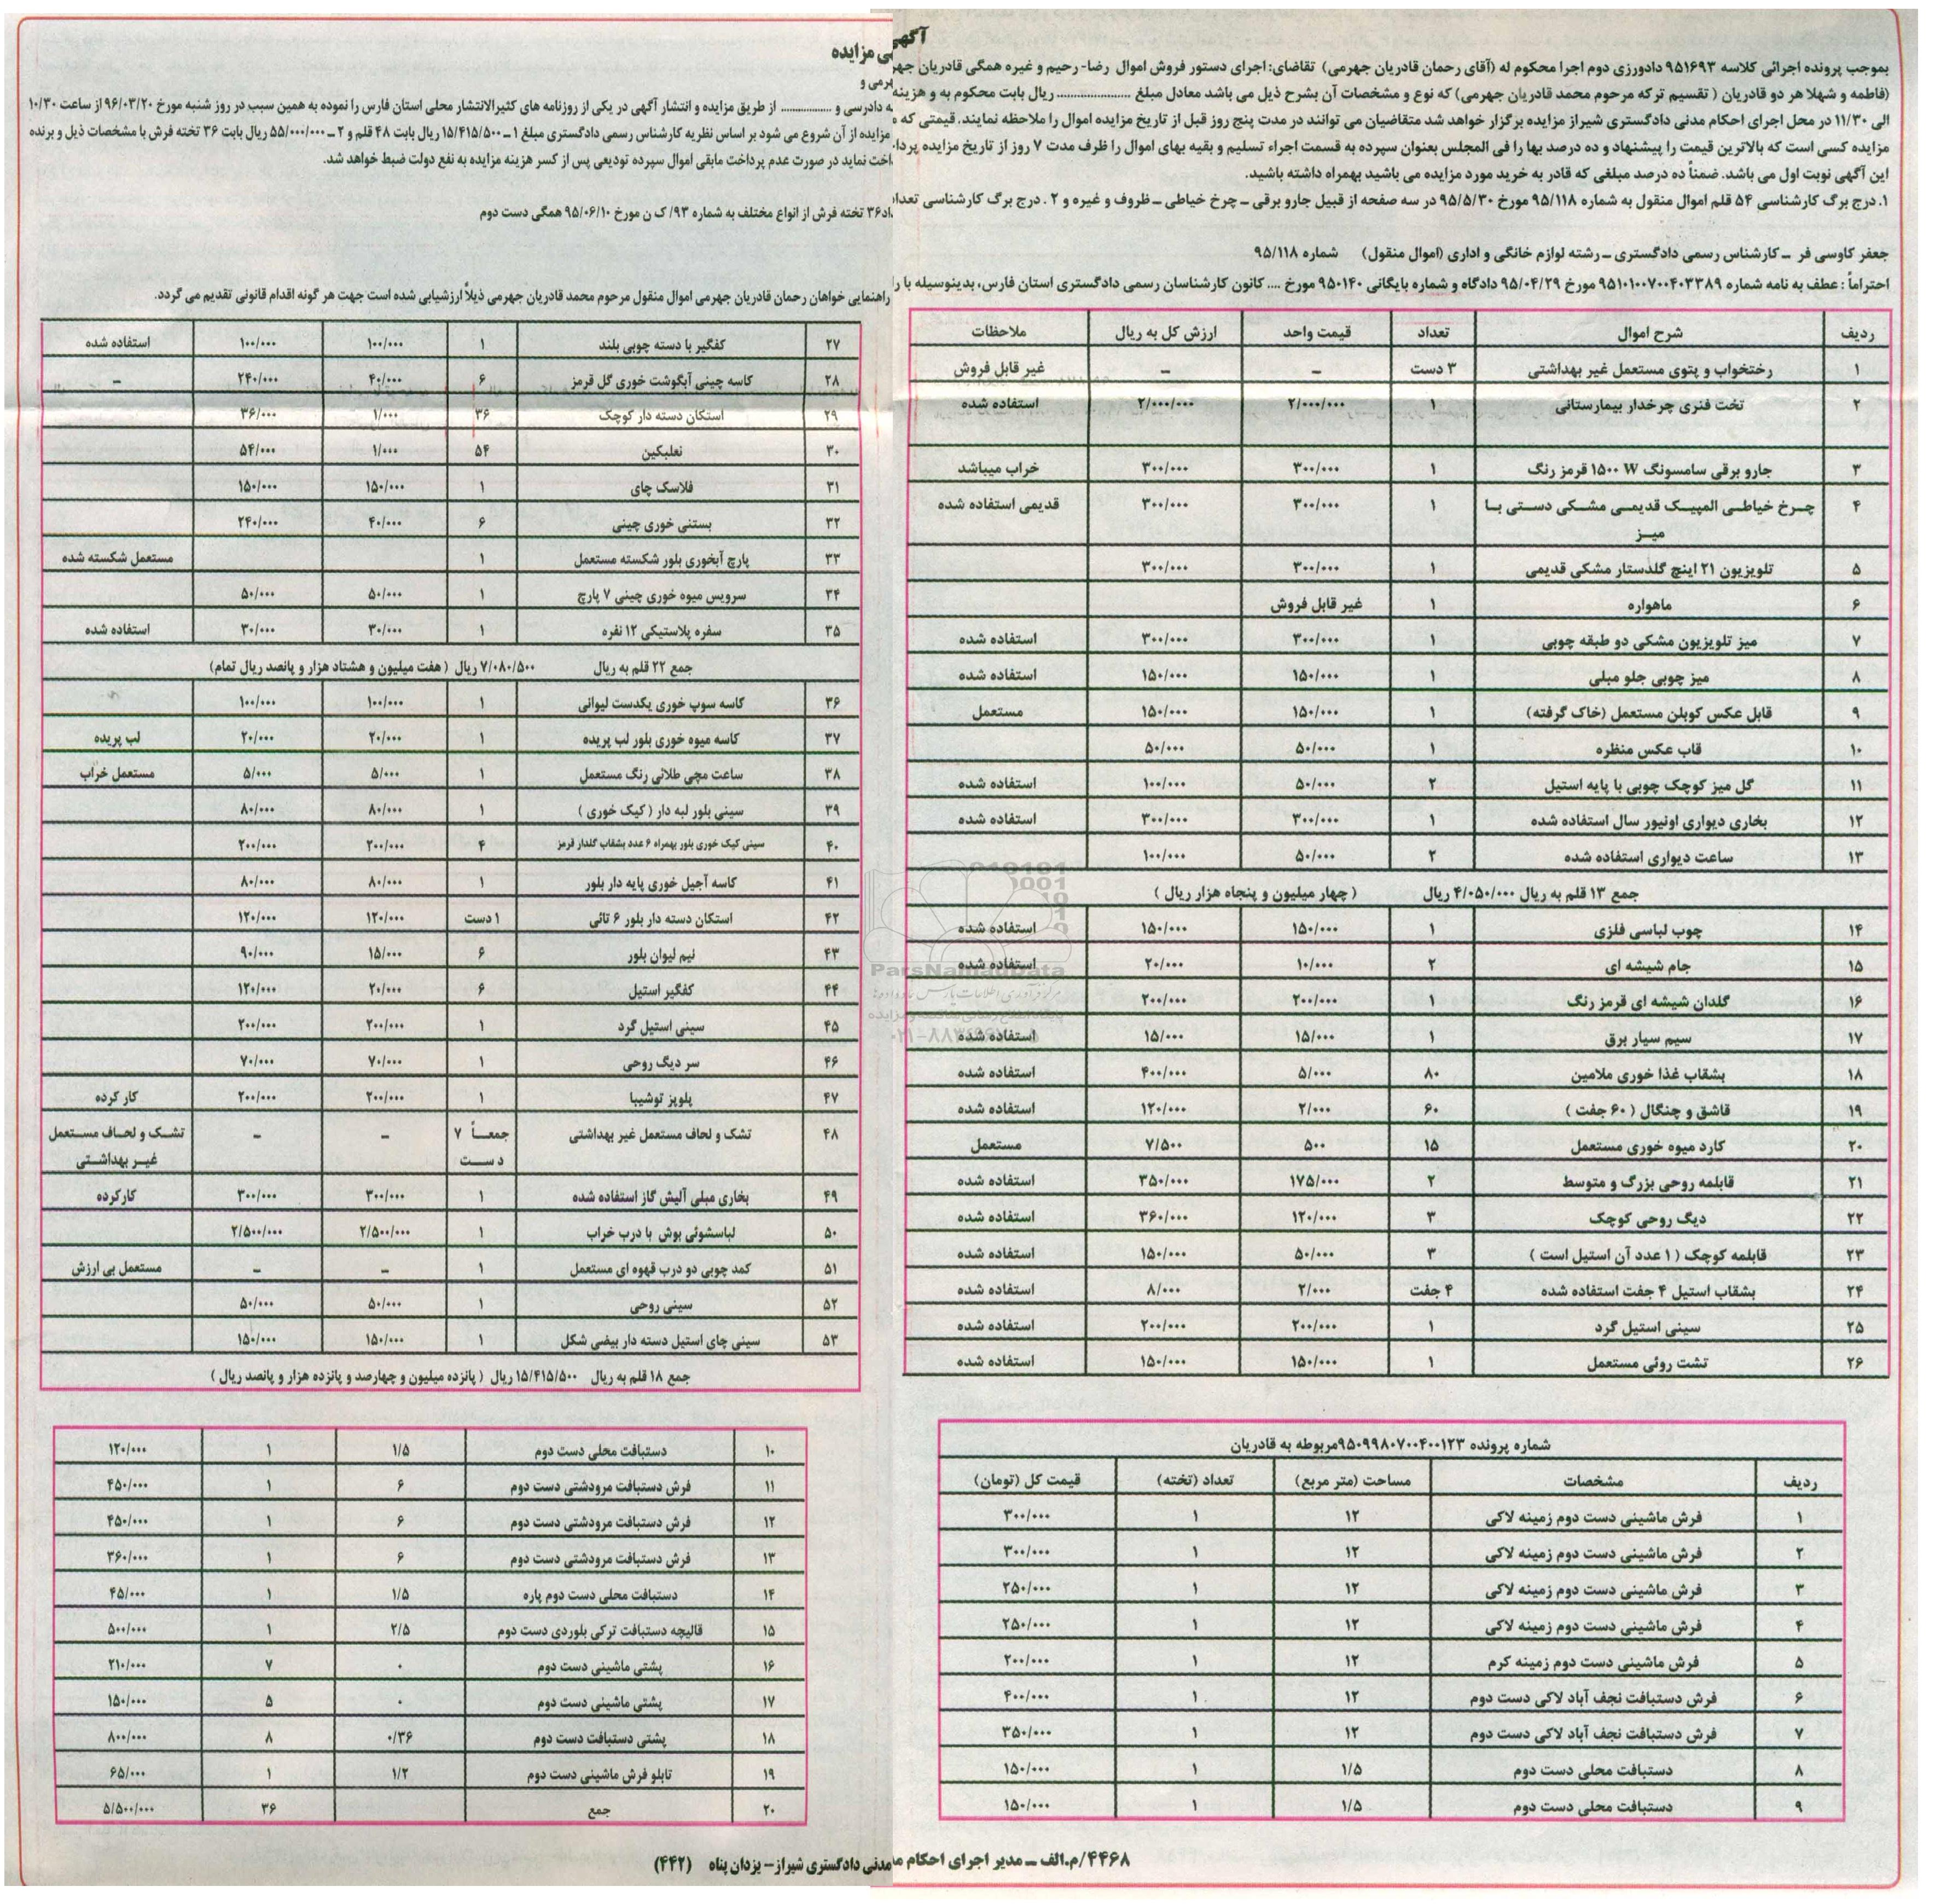 آگهی مزایده
بموجب پرونده اجرائی کلاسه ۹۵۱۶۹۳ دادورزی دوم اجرا محکوم له (آقای رحمان قادریان جهرمی) تقاضای: اجرای دستور فروش اموال رضا- رحیم و غیره همگی قادریان جهرمی و
(فاطمه و شهلا هر دو قادریان ( تقسیم ترکه مرحوم محمد قادریان جهرمی) که نوع و مشخصات آن بشرح ذیل می باشد معادل مبلغ .................... ریال بابت محکوم به و هزینه دادرسی و ................ از طریق مزایده و انتشار آگهی در یکی از روزنامه های کثیرالانتشار محلی استان فارس را نموده به همین سبب در روز شنبه مورخ ۹۶/۰۳/۲۰ از ساعت ۱۰/۳۰
الی ۱۱/۳۰ در محل اجرای احکام مدنی دادگستری شیراز مزایده برگزار خواهد شد متقاضیان می توانند در مدت پنج روز قبل از تاریخ مزایده اموال را ملاحظه نمایند. قیمتی که مزایده از آن شروع می شود بر اساس نظریه کارشناس رسمی دادگستری مبلغ ۱ ـ ۱۵/۴۱۵/۵۰۰ ریال بابت ۴۸ قلم و ۲ ـ ۵۵/۰۰۰/۰۰۰ ریال بابت ۳۶ تخته فرش با مشخصات ذیل و برنده
مزایده کسی است که بالاترین قیمت را پیشنهاد و ده درصد بها را فی المجلس بعنوان سپرده به قسمت اجراء تسلیم و بقیه بهای اموال را ظرف مدت ۷ روز از تاریخ مزایده پرداخت نماید در صورت عدم پرداخت مابقی اموال سپرده تودیعی پس از کسر هزینه مزایده به نفع دولت ضبط خواهد شد.
این آگهی نوبت اول می باشد. ضمناً ده درصد مبلغی که قادر به خرید مورد مزایده می باشید بهمراه داشته باشید.
۱. درج برگ کارشناسی ۵۴ قلم اموال منقول به شماره ۹۵/۱۱۸ مورخ ۹۵/۵/۳۰ در سه صفحه از قبیل جارو برقی ـ چرخ خیاطی ـ ظروف و غیره و ۲ . درج برگ کارشناسی تعداد ۳۶ تخته فرش از انواع مختلف به شماره ۹۳/ ک ن مورخ ۹۵/۰۶/۱۰ همگی دست دوم
جعفر کاوسی فر ـ کارشناس رسمی دادگستری ـ رشته لوازم خانگی و اداری (اموال منقول) شماره ۹۵/۱۱۸
احتراماً : عطف به نامه شماره ۹۵۱۰۱۰۰۷۰۰۴۰۳۳۸۹ مورخ ۹۵/۰۴/۲۹ دادگاه و شماره بایگانی ۹۵۰۱۴۰ مورخ .... کانون کارشناسان رسمی دادگستری استان فارس، بدینوسیله با راهنمایی خواهان رحمان قادریان جهرمی اموال منقول مرحوم محمد قادریان جهرمی ذیلاً ارزشیابی شده است جهت هر گونه اقدام قانونی تقدیم می گردد.
ردیف شرح اموال تعداد قیمت واحد ارزش کل به ریال ملاحظات
۱ رختخواب و پتوی مستعمل غیر بهداشتی ۳ دست – – غیر قابل فروش
۲ تخت فنری چرخدار بیمارستانی ۱ ۲/۰۰۰/۰۰۰ ۲/۰۰۰/۰۰۰ استفاده شده
۳ جارو برقی سامسونگ W ۱۵۰۰ قرمز رنگ ۱ ۳۰۰/۰۰۰ ۳۰۰/۰۰۰ خراب میباشد
۴ چرخ خیاطی المپیک قدیمی مشکی دستی با میز ۱ ۳۰۰/۰۰۰ ۳۰۰/۰۰۰ قدیمی استفاده شده
۵ تلویزیون ۲۱ اینچ گلدستار مشکی قدیمی ۱ ۳۰۰/۰۰۰ ۳۰۰/۰۰۰
۶ ماهواره ۱ غیر قابل فروش
۷ میز تلویزیون مشکی دو طبقه چوبی ۱ ۳۰۰/۰۰۰ ۳۰۰/۰۰۰ استفاده شده
۸ میز چوبی جلو مبلی ۱ ۱۵۰/۰۰۰ ۱۵۰/۰۰۰ استفاده شده
۹ قابل عکس کوبلن مستعمل (خاک گرفته) ۱ ۱۵۰/۰۰۰ ۱۵۰/۰۰۰ مستعمل
۱۰ قاب عکس منظره ۱ ۵۰/۰۰۰ ۵۰/۰۰۰
۱۱ گل میز کوچک چوبی با پایه استیل ۲ ۵۰/۰۰۰ ۱۰۰/۰۰۰ استفاده شده
۱۲ بخاری دیواری اونیور سال استفاده شده ۱ ۳۰۰/۰۰۰ ۳۰۰/۰۰۰ استفاده شده
۱۳ ساعت دیواری استفاده شده ۲ ۵۰/۰۰۰ ۱۰۰/۰۰۰
جمع ۱۳ قلم به ریال ۴/۰۵۰/۰۰۰ ریال ( چهار میلیون و پنجاه هزار ریال )
۱۴ چوب لباسی فلزی ۱ ۱۵۰/۰۰۰ ۱۵۰/۰۰۰ استفاده شده
۱۵ جام شیشه ای ۲ ۱۰/۰۰۰ ۲۰/۰۰۰ استفاده شده
۱۶ گلدان شیشه ای قرمز رنگ ۱ ۲۰۰/۰۰۰ ۲۰۰/۰۰۰ استفاده شده
۱۷ سیم سیار برق ۱ ۱۵/۰۰۰ ۱۵/۰۰۰ استفاده شده
۱۸ بشقاب غذا خوری ملامین ۸۰ ۵/۰۰۰ ۴۰۰/۰۰۰ استفاده شده
۱۹ قاشق و چنگال ( ۶۰ جفت ) ۶۰ ۲/۰۰۰ ۱۲۰/۰۰۰ استفاده شده
۲۰ کارد میوه خوری مستعمل ۱۵ ۵۰۰ ۷/۵۰۰ مستعمل
۲۱ قابلمه روحی بزرگ و متوسط ۲ ۱۷۵/۰۰۰ ۳۵۰/۰۰۰ استفاده شده
۲۲ دیگ روحی کوچک ۳ ۱۲۰/۰۰۰ ۳۶۰/۰۰۰ استفاده شده
۲۳ قابلمه کوچک ( ۱ عدد آن استیل است ) ۳ ۵۰/۰۰۰ ۱۵۰/۰۰۰ استفاده شده
۲۴ بشقاب استیل ۴ جفت استفاده شده ۴ جفت ۲/۰۰۰ ۸/۰۰۰ استفاده شده
۲۵ سینی استیل گرد ۱ ۲۰۰/۰۰۰ ۲۰۰/۰۰۰ استفاده شده
۲۶ تشت روئی مستعمل ۱ ۱۵۰/۰۰۰ ۱۵۰/۰۰۰ استفاده شده
۲۷ کفگیر با دسته چوبی بلند ۱ ۱۰۰/۰۰۰ ۱۰۰/۰۰۰ استفاده شده
۲۸ کاسه چینی آبگوشت خوری گل قرمز ۶ ۴۰/۰۰۰ ۲۴۰/۰۰۰ –
۲۹ استکان دسته دار کوچک ۳۶ ۱/۰۰۰ ۳۶/۰۰۰
۳۰ نعلبکین ۵۴ ۱/۰۰۰ ۵۴/۰۰۰
۳۱ فلاسک چای ۱ ۱۵۰/۰۰۰ ۱۵۰/۰۰۰
۳۲ بستنی خوری چینی ۶ ۴۰/۰۰۰ ۲۴۰/۰۰۰
۳۳ پارچ آبخوری بلور شکسته مستعمل ۱ مستعمل شکسته شده
۳۴ سرویس میوه خوری چینی ۷ پارچ ۱ ۵۰/۰۰۰ ۵۰/۰۰۰
۳۵ سفره پلاستیکی ۱۲ نفره ۱ ۳۰/۰۰۰ ۳۰/۰۰۰ استفاده شده
جمع ۲۲ قلم به ریال ۷/۰۸۰/۵۰۰ ریال ( هفت میلیون و هشتاد هزار و پانصد ریال تمام)
۳۶ کاسه سوپ خوری یکدست لیوانی ۱ ۱۰۰/۰۰۰ ۱۰۰/۰۰۰
۳۷ کاسه میوه خوری بلور لب پریده ۱ ۲۰/۰۰۰ ۲۰/۰۰۰ لب پریده
۳۸ ساعت مچی طلائی رنگ مستعمل ۱ ۵/۰۰۰ ۵/۰۰۰ مستعمل خراب
۳۹ سینی بلور لبه دار ( کیک خوری ) ۱ ۸۰/۰۰۰ ۸۰/۰۰۰
۴۰ سینی کیک خوری بلور بهمراه ۶ عدد بشقاب گلدار قرمز ۴ ۲۰۰/۰۰۰ ۲۰۰/۰۰۰
۴۱ کاسه آجیل خوری پایه دار بلور ۱ ۸۰/۰۰۰ ۸۰/۰۰۰
۴۲ استکان دسته دار بلور ۶ تائی ۱ دست ۱۲۰/۰۰۰ ۱۲۰/۰۰۰
۴۳ نیم لیوان بلور ۶ ۱۵/۰۰۰ ۹۰/۰۰۰
۴۴ کفگیر استیل ۶ ۲۰/۰۰۰ ۱۲۰/۰۰۰
۴۵ سینی استیل گرد ۱ ۲۰۰/۰۰۰ ۲۰۰/۰۰۰
۴۶ سر دیگ روحی ۱ ۷۰/۰۰۰ ۷۰/۰۰۰
۴۷ پلوپز توشیبا ۱ ۲۰۰/۰۰۰ ۲۰۰/۰۰۰ کار کرده
۴۸ تشک و لحاف مستعمل غیر بهداشتی جمعاً ۷ دست – – تشک و لحاف مستعمل غیر بهداشتی
۴۹ بخاری مبلی آلیش گاز استفاده شده ۱ ۳۰۰/۰۰۰ ۳۰۰/۰۰۰ کارکرده
۵۰ لباسشوئی بوش با درب خراب ۱ ۲/۵۰۰/۰۰۰ ۲/۵۰۰/۰۰۰
۵۱ کمد چوبی دو درب قهوه ای مستعمل ۱ – – مستعمل بی ارزش
۵۲ سینی روحی ۱ ۵۰/۰۰۰ ۵۰/۰۰۰
۵۳ سینی چای استیل دسته دار بیضی شکل ۱ ۱۵۰/۰۰۰ ۱۵۰/۰۰۰
جمع ۱۸ قلم به ریال ۱۵/۴۱۵/۵۰۰ ریال ( پانزده میلیون و چهارصد و پانزده هزار و پانصد ریال )
شماره پرونده ۹۵۰۹۹۸۰۷۰۰۴۰۰۱۲۳مربوطه به قادریان
ردیف مشخصات مساحت (متر مربع) تعداد (تخته) قیمت کل (تومان)
۱ فرش ماشینی دست دوم زمینه لاکی ۱۲ ۱ ۳۰۰/۰۰۰
۲ فرش ماشینی دست دوم زمینه لاکی ۱۲ ۱ ۳۰۰/۰۰۰
۳ فرش ماشینی دست دوم زمینه لاکی ۱۲ ۱ ۲۵۰/۰۰۰
۴ فرش ماشینی دست دوم زمینه لاکی ۱۲ ۱ ۲۵۰/۰۰۰
۵ فرش ماشینی دست دوم زمینه کرم ۱۲ ۱ ۲۰۰/۰۰۰
۶ فرش دستبافت نجف آباد لاکی دست دوم ۱۲ ۱ ۴۰۰/۰۰۰
۷ فرش دستبافت نجف آباد لاکی دست دوم ۱۲ ۱ ۳۵۰/۰۰۰
۸ دستبافت محلی دست دوم ۱/۵ ۱ ۱۵۰/۰۰۰
۹ دستبافت محلی دست دوم ۱/۵ ۱ ۱۵۰/۰۰۰
۱۰ دستبافت محلی دست دوم ۱/۵ ۱ ۱۲۰/۰۰۰
۱۱ فرش دستبافت مرودشتی دست دوم ۶ ۱ ۴۵۰/۰۰۰
۱۲ فرش دستبافت مرودشتی دست دوم ۶ ۱ ۴۵۰/۰۰۰
۱۳ فرش دستبافت مرودشتی دست دوم ۶ ۱ ۳۶۰/۰۰۰
۱۴ دستبافت محلی دست دوم پاره ۱/۵ ۱ ۴۵/۰۰۰
۱۵ قالیچه دستبافت ترکی بلوردی دست دوم ۲/۵ ۱ ۵۰۰/۰۰۰
۱۶ پشتی ماشینی دست دوم ۰ ۷ ۲۱۰/۰۰۰
۱۷ پشتی ماشینی دست دوم ۰ ۵ ۱۵۰/۰۰۰
۱۸ پشتی دستبافت دست دوم ۰/۳۶ ۸ ۸۰۰/۰۰۰
۱۹ تابلو فرش ماشینی دست دوم ۱/۲ ۱ ۶۵/۰۰۰
۲۰ جمع ۳۶ ۵/۵۰۰/۰۰۰
۴۴۶۸/م.الف ـ مدیر اجرای احکام مدنی دادگستری شیراز– یزدان پناه (۴۴۲)
ParsNamadData